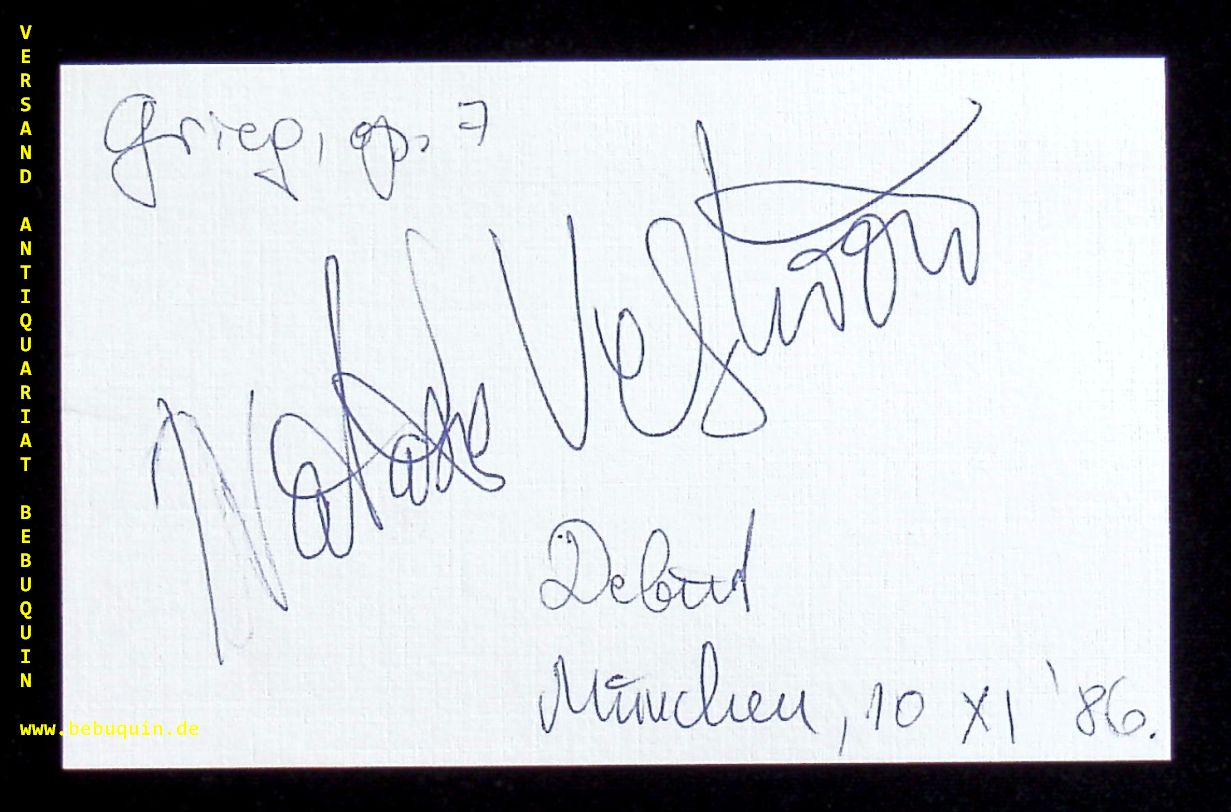 VERSAND ANTIQUARIAT BEBUQUIN
www.bebuquin.de
Grieg, op. 7
Debüt
München, 10 XI '86.